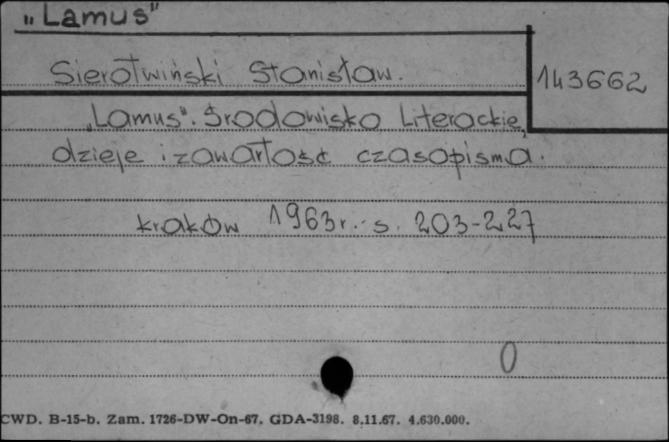 „Lamus”
Sierotwiński Stanisław.
143662
„Lamus”. Środowisko Literackie,
dzieje i zawartość czasopisma.
Kraków 1963r. s. 203-227
0
CWD. B-15-b. Zam. 1726-DW-On-67. GDA-3198. 8.11.67. 4.630.000.